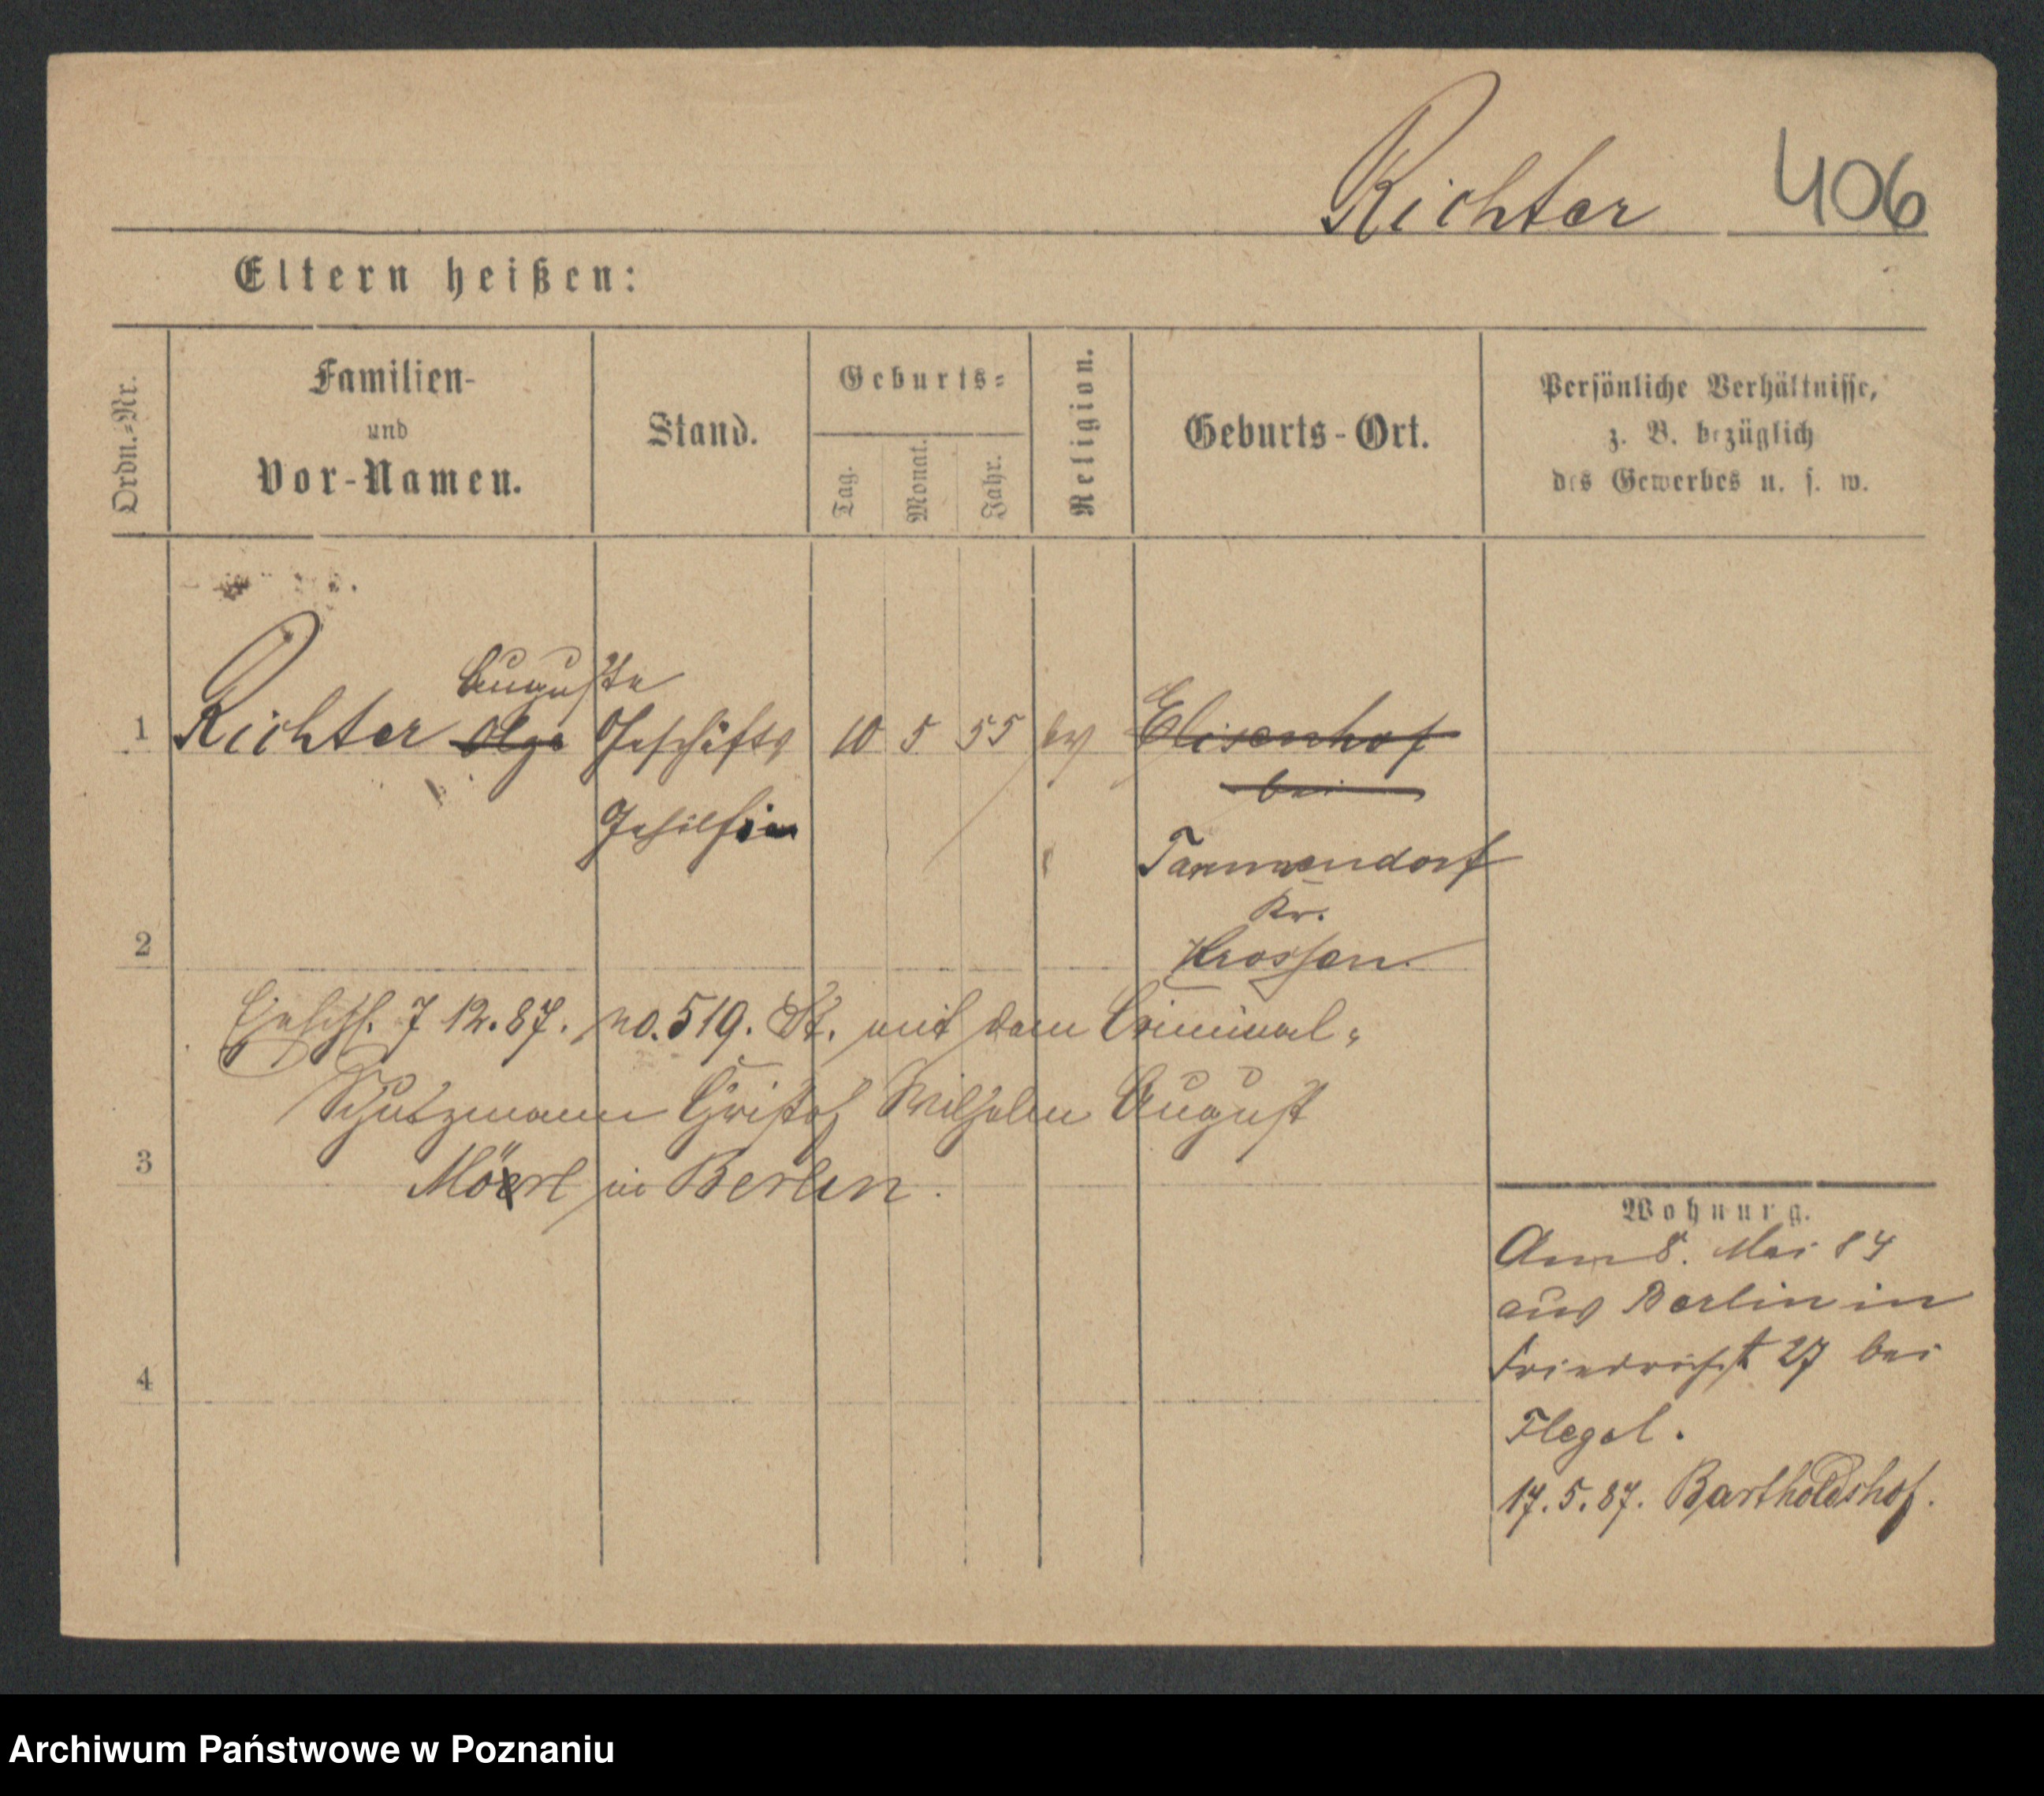 Richter 406
Eltern heißen:
Ordn.-Nr.
Familien-
und
Vor-Namen.
Stand.
Geburts-
Tag.
Monat.
Jahr.
Religion.
Geburts-Ort.
Persönliche Verhältnisse,
z. B. bezüglich
des Gewerbes u. s. w.
Auguste
1 Richter Olga Geschäfts 10 5 55 ev Elisenhof
bei
Gehilfin
Tammendorf
Kr.
2 Krossen.
Ehesch. 7 12.87. No. 519. St. mit dem Criminal-
Schutzmann Christof Wilhelm August
3 in Berlin.
Wohnung.
Am 8. Mai 84
aus Berlin in
Friedrichst 27 bei
4
Flegel.
17.5.87. Bartholdshof.
Archiwum Państwowe w Poznaniu